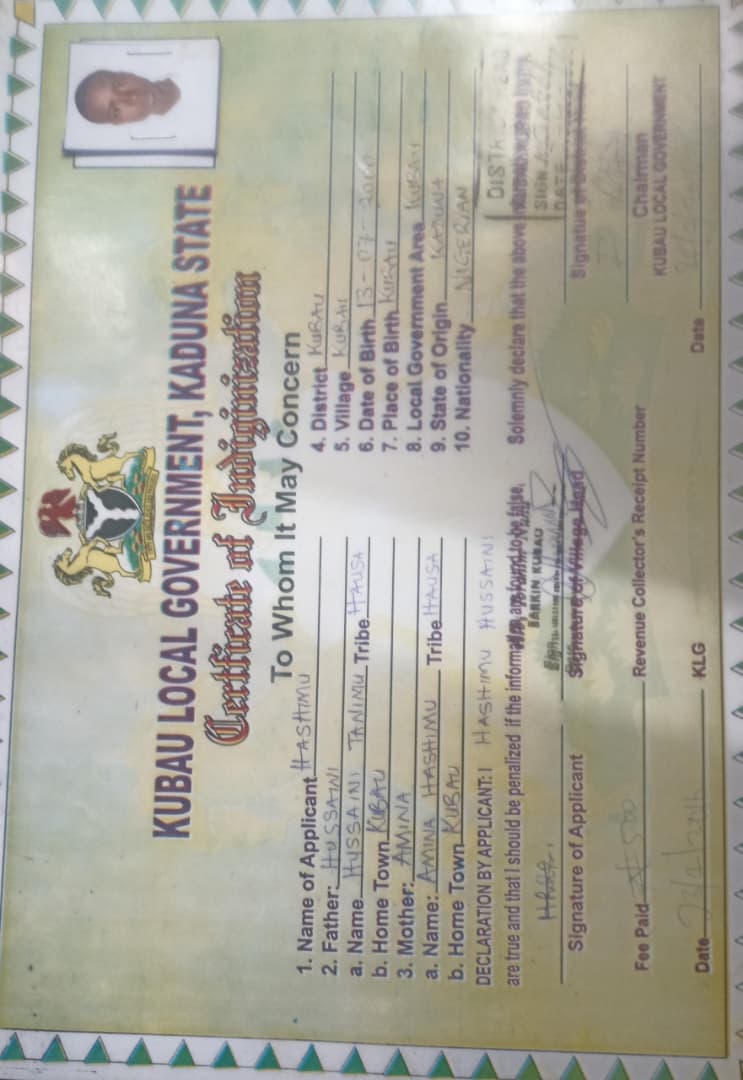 KUBAU LOCAL GOVERNMENT, KADUNA STATE
Certificate of Indiginization
To Whom It May Concern
1. Name of Applicant HASHIMU
2. Father: HUSSAINI
a. Name HUSSAINI TANIMU Tribe HAUSA
b. Home Town KUBAU
3. Mother: AMINA
a. Name: AMINA HASHIMU Tribe HAUSA
b. Home Town KUBAU
4. District KUBAU
5. Village KUBAU
6. Date of Birth 13-07-
7. Place of Birth KUBAU
8. Local Government Area KUBAU
9. State of Origin KADUNA
10. Nationality NIGERIAN
DECLARATION BY APPLICANT: I HASHIMU HUSSAINI Solemnly declare that the above
are true and that I should be penalized if the information are found to be false,
SARKIN KUBAU
SIGN
DATE
Signature of Applicant
Signature of Village Head
Signatue of
Fee Paid ₦500 Revenue Collector's Receipt Number
Chairman
KUBAU LOCAL GOVERNMENT
Date KLG
Date